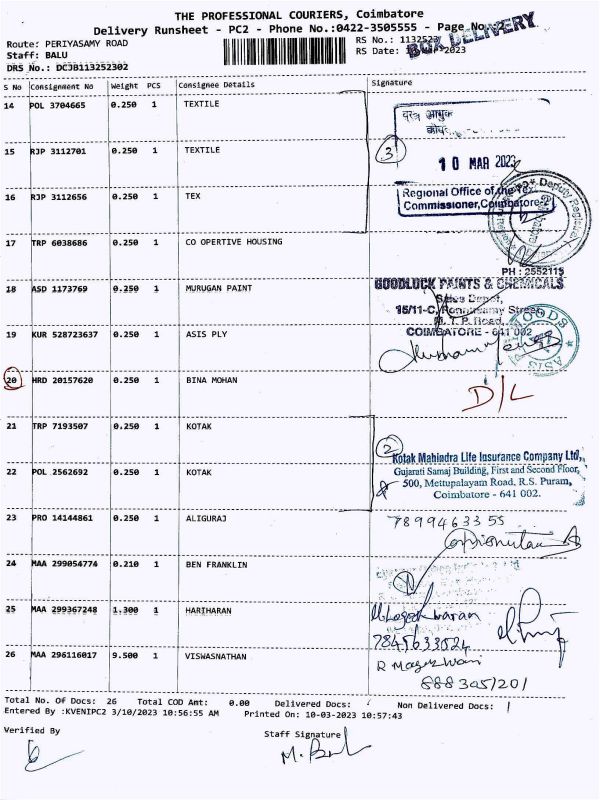 THE PROFESSIONAL COURIERS, Coimbatore
Delivery Runsheet - PC2 - Phone No.:0422-3505555 - Page No. 2
BOX DELIVERY
Route: PERIYASAMY ROAD
RS No.: 1132523
Staff: BALU
RS Date: 2023
DRS No.: DCJB113252302
S No Consignment No Weight PCS Consignee Details Signature
14 POL 3704665 0.250 1 TEXTILE
वस्त्र आयुक्त
15 RJP 3112701 0.250 1 TEXTILE
3
10 MAR 2023
16 RJP 3112656 0.250 1 TEX
Regional Office of the Tex
Commissioner, Coimbatore-2
Deputy Regional
17 TRP 6038686 0.250 1 CO OPERTIVE HOUSING
PH : 2552115
18 ASD 1173769 0.250 1 MURUGAN PAINT
GOODLUCK PAINTS & CHEMICALS
Sales Depot,
15/11-C, Ponnusamy Street,
M. T. P. Road,
COIMBATORE - 641 002
19 KUR 528723637 0.250 1 ASIS PLY
ASIS PLYWOODS
20 HRD 20157620 0.250 1 BINA MOHAN
D/L
21 TRP 7193507 0.250 1 KOTAK
2
Kotak Mahindra Life Insurance Company Ltd,
Gujarati Samaj Building, First and Second Floor,
22 POL 2562692 0.250 1 KOTAK
500, Mettupalayam Road, R.S. Puram,
Coimbatore - 641 002.
23 PRO 14144861 0.250 1 ALIGURAJ
7899463355
24 MAA 299054774 0.210 1 BEN FRANKLIN
25 MAA 299367248 1.300 1 HARIHARAN
7845633524
26 MAA 296116017 9.500 1 VISWASNATHAN
R Mageswari
888305/201
Total No. Of Docs: 26 Total COD Amt: 0.00 Delivered Docs: Non Delivered Docs: 1
Entered By :KVENIPC2 3/10/2023 10:56:55 AM Printed On: 10-03-2023 10:57:43
Verified By
Staff Signature